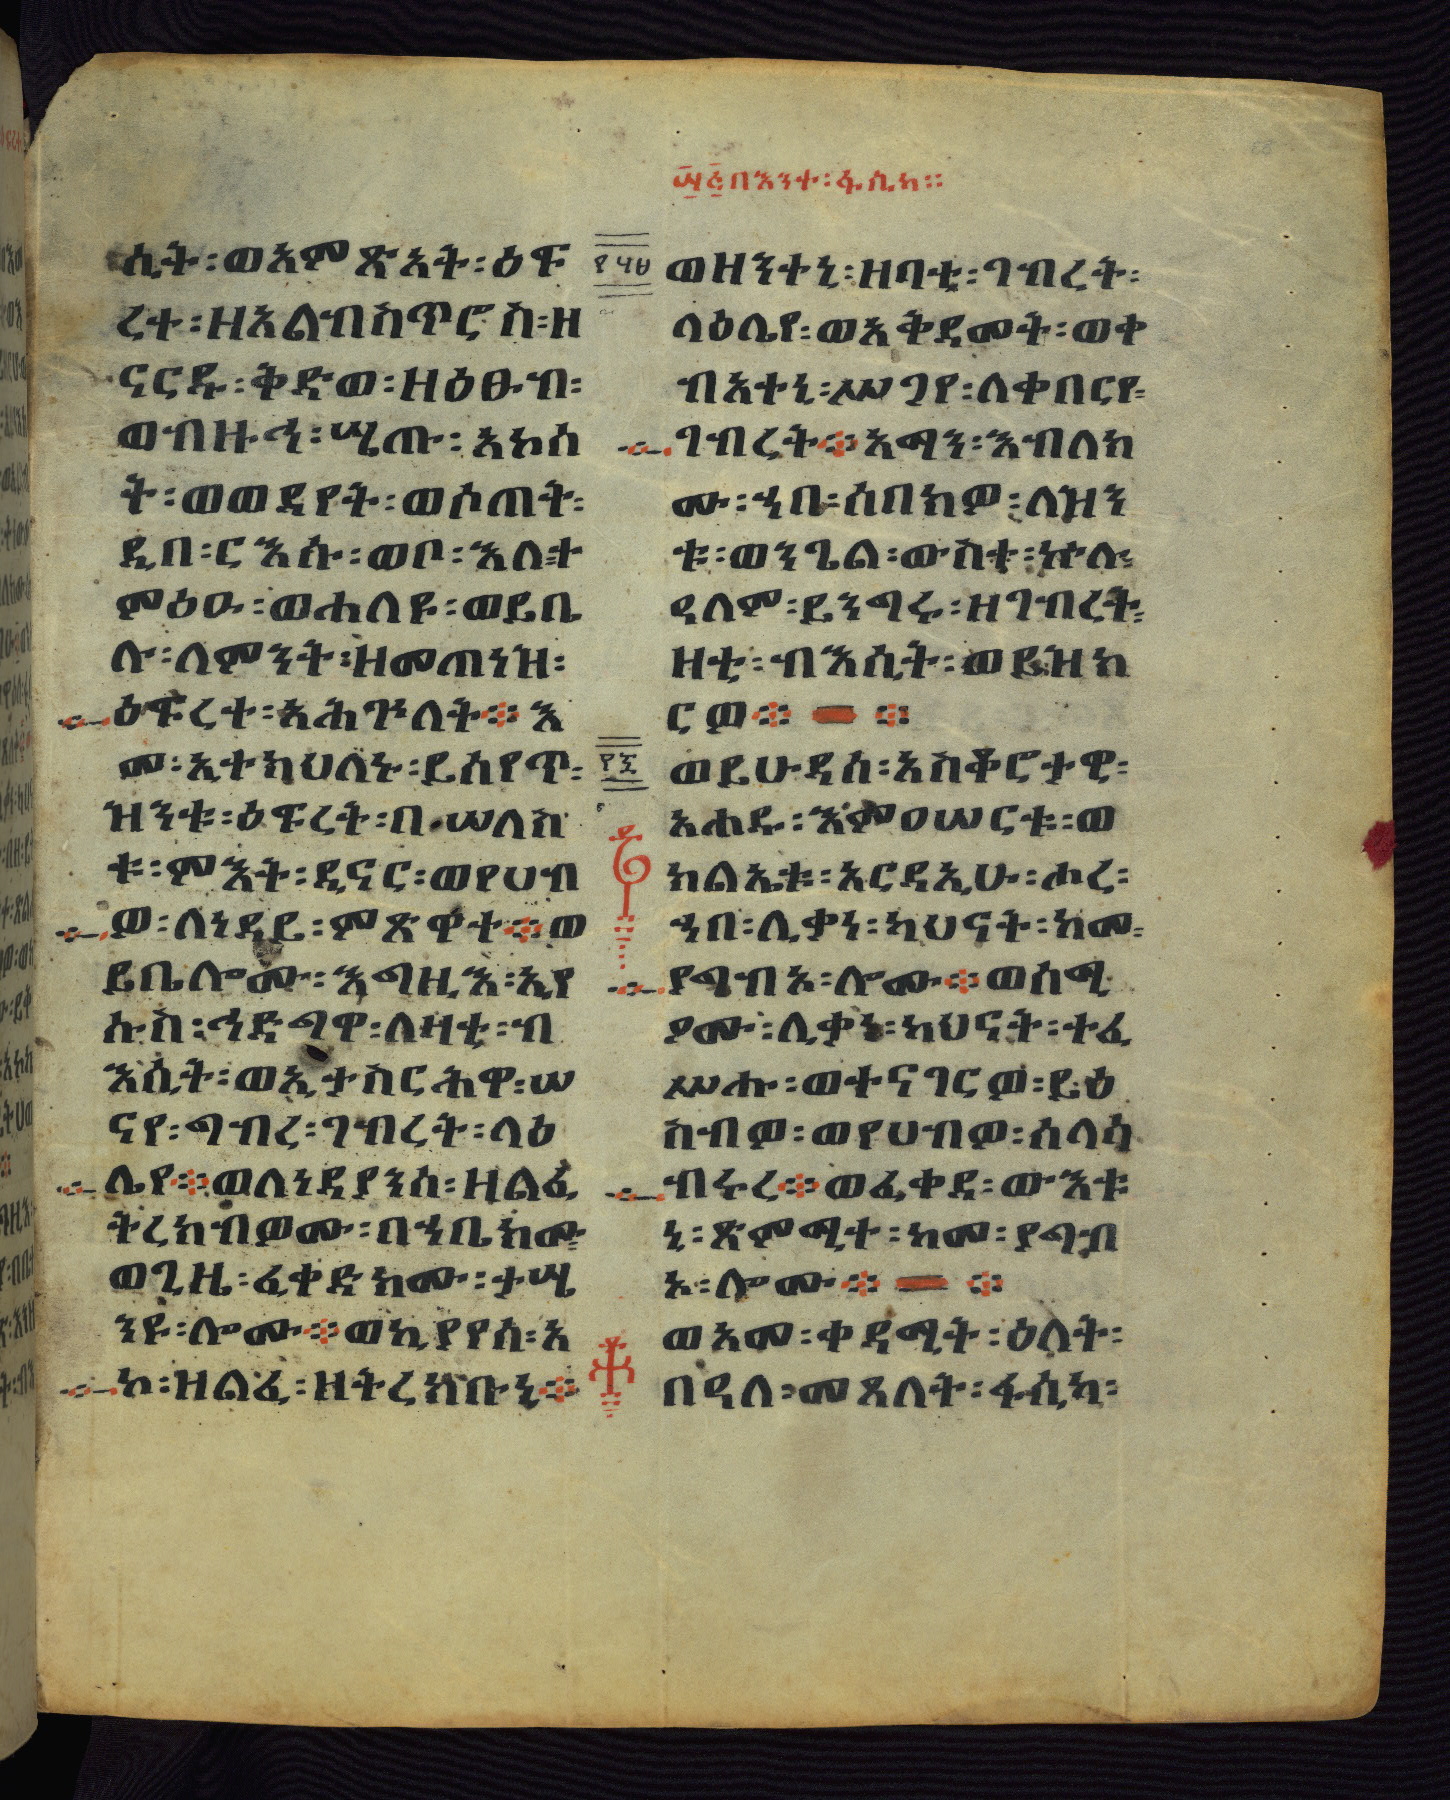 በእንተ፡ፋሲካ።
ሲት፡ወአምጽአት፡ዕፍ
ረተ፡ዘአልብስጥሮስ፡ዘ
ናርዱ፡ቅድው፡ዘዕፁብ፡
ወብዙኅ፡ሤጡ፡አኮስ
ት፡ወወደየት፡ወሶጠት፡
ዲበ፡ርእሱ፡ወቦ፡እለ፡ተ
ምዕዑ፡ወሐለዩ፡ወይቤ
ሉ፡ለምንት፡ዘመጠነዝ፡
ዕፍረተ፡አሕጐለት፨እ
መ፡ኢተክህለኑ፡ይሰየጥ፡
ዝንቱ፡ዕፍረት፡በሠለስ
ቱ፡ምእት፡ዲናር፡ወየሀብ
ዎ፡ለነዳይ፡ምጽዋተ፨ወ
ይቤሎሙ፡እግዚእ፡ኢየ
ሱስ፡ኅድግዋ፡ለዛቲ፡ብ
እሲት፡ወኢተስርሕዋ፡ሠ
ናየ፡ግብረ፡ገብረት፡ላዕ
ሌየ፨ወለነዳያንሰ፡ዘልፈ
ትረክብዎሙ፡በኀቤክሙ፡
ወጊዜ፡ፈቀድክሙ፡ታሤ
ንዩ፡ሎሙ፨ወኪያየሰ፡አ
ኮ፡ዘልፈ፡ዘትረክቡኒ፨
፲፶፱
ወዘንተኒ፡ዘባቲ፡ገብረት፡
ላዕሌየ፡ወአቅደመት፡ወቀ
ብአተኒ፡ሥጋየ፡ለቀበርየ፡
ገብረት፨አማን፡እብለክ
ሙ፡ኀበ፡ሰበክዎ፡ለዝን
ቱ፡ወንጌል፡ውስተ፡ኵሉ፡
ዓለም፡ይንግሩ፡ዘገብረት፡
ዛቲ፡ብእሲት፡ወይዝክ
ርዋ፨፨
፲፮
ወይሁዳስ፡አስቆሮታዊ፡
አሐዱ፡እምዐሠርቱ፡ወ
ክልኤቱ፡አርዳኢሁ፡ሖረ፡
ኀበ፡ሊቃነ፡ካህናት፡ከመ፡
ያግብአ፡ሎሙ፨ወሰሚ
ዖሙ፡ሊቃነ፡ካህናት፡ተፈ
ሥሑ፡ወተናገርዎ፡ይዕ
ስብዎ፡ወየሀብዎ፡ሰላሳ
ብሩረ፨ወፈቀደ፡ውእቱ
ኒ፡ጽምሚተ፡ከመ፡ያግብ
አ፡ሎሙ፨፨
ወአመ፡ቀዳሚት፡ዕለት፡
በዓለ፡መጸለት፡ፋሲካ፡